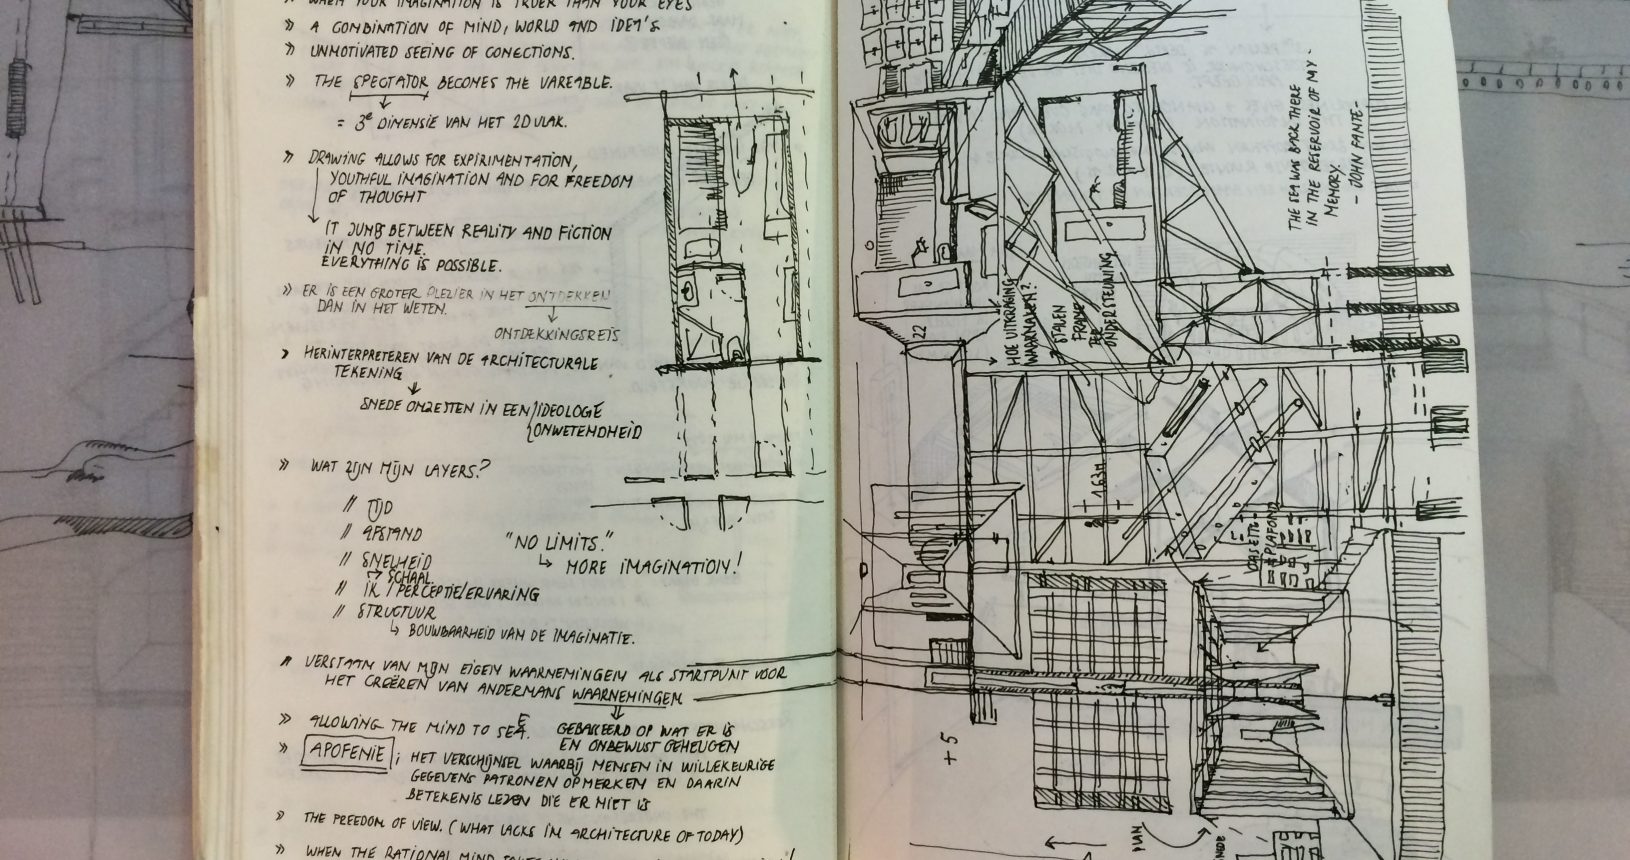 WHEN YOUR IMAGINATION IS TRUER THAN YOUR EYES
» A COMBINATION OF MIND, WORLD AND IDEA'S
» UNMOTIVATED SEEING OF CONECTIONS.
» THE SPECTATOR BECOMES THE VAREABLE.
= 3e DIMENSIE VAN HET 2D VLAK.
» DRAWING ALLOWS FOR EXPIRIMENTATION,
YOUTHFUL IMAGINATION AND FOR FREEDOM
OF THOUGHT
IT JUMPS BETWEEN REALITY AND FICTION
IN NO TIME.
EVERYTHING IS POSSIBLE.
» ER IS EEN GROTER PLEZIER IN HET ONTDEKKEN
DAN IN HET WETEN.
ONTDEKKINGSREIS
> HERINTERPRETEREN VAN DE ARCHITECTURALE
TEKENING
SNEDE OMZETTEN IN EEN IDEOLOGE
ONWETENDHEID
» WAT ZIJN MIJN LAYERS?
// TIJD
// AFSTAND
// SNELHEID
SCHAAL
// IK / PERCEPTIE/ERVARING
// STRUCTUUR
BOUWBAARHEID VAN DE IMAGINATIE.
"NO LIMITS."
MORE IMAGINATION!
» VERSTAAN VAN MIJN EIGEN WAARNEMINGEN ALS STARTPUNT VOOR
HET CREËREN VAN ANDERMANS WAARNEMINGEN
GEBASEERD OP WAT ER IS
EN ONBEWUST GEHEUGEN
» ALLOWING THE MIND TO SEE.
» APOFENIE ; HET VERSCHIJNSEL WAARBIJ MENSEN IN WILLEKEURIGE
GEGEVENS PATRONEN OPMERKEN EN DAARIN
BETEKENIS LEZEN DIE ER NIET IS
» THE FREEDOM OF VIEW. (WHAT LACKS IN ARCHITECTURE OF TODAY)
» WHEN THE RATIONAL MIND
THE SEA WAS BACK THERE
IN THE RESERVOIR OF MY
MEMORY.
- JOHN FANTE -
HOE UITKRAGING
WAARMAKEN?
STALEN
FRAME
TER
ONDERSTEUNING
22
1.63M
CASETTE
PLAFOND
+5
PLAN